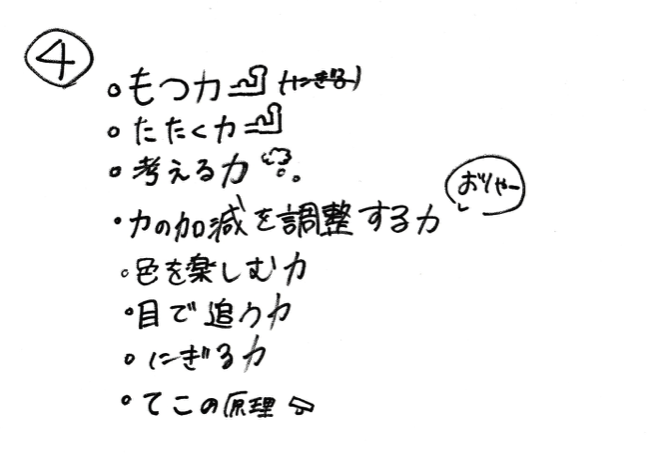 ④
○もつ力 (にぎる)
○たたく力
○考える力
・力の加減を調整する力 おりゃー
○色を楽しむ力
○目で追う力
○にぎる力
○てこの原理